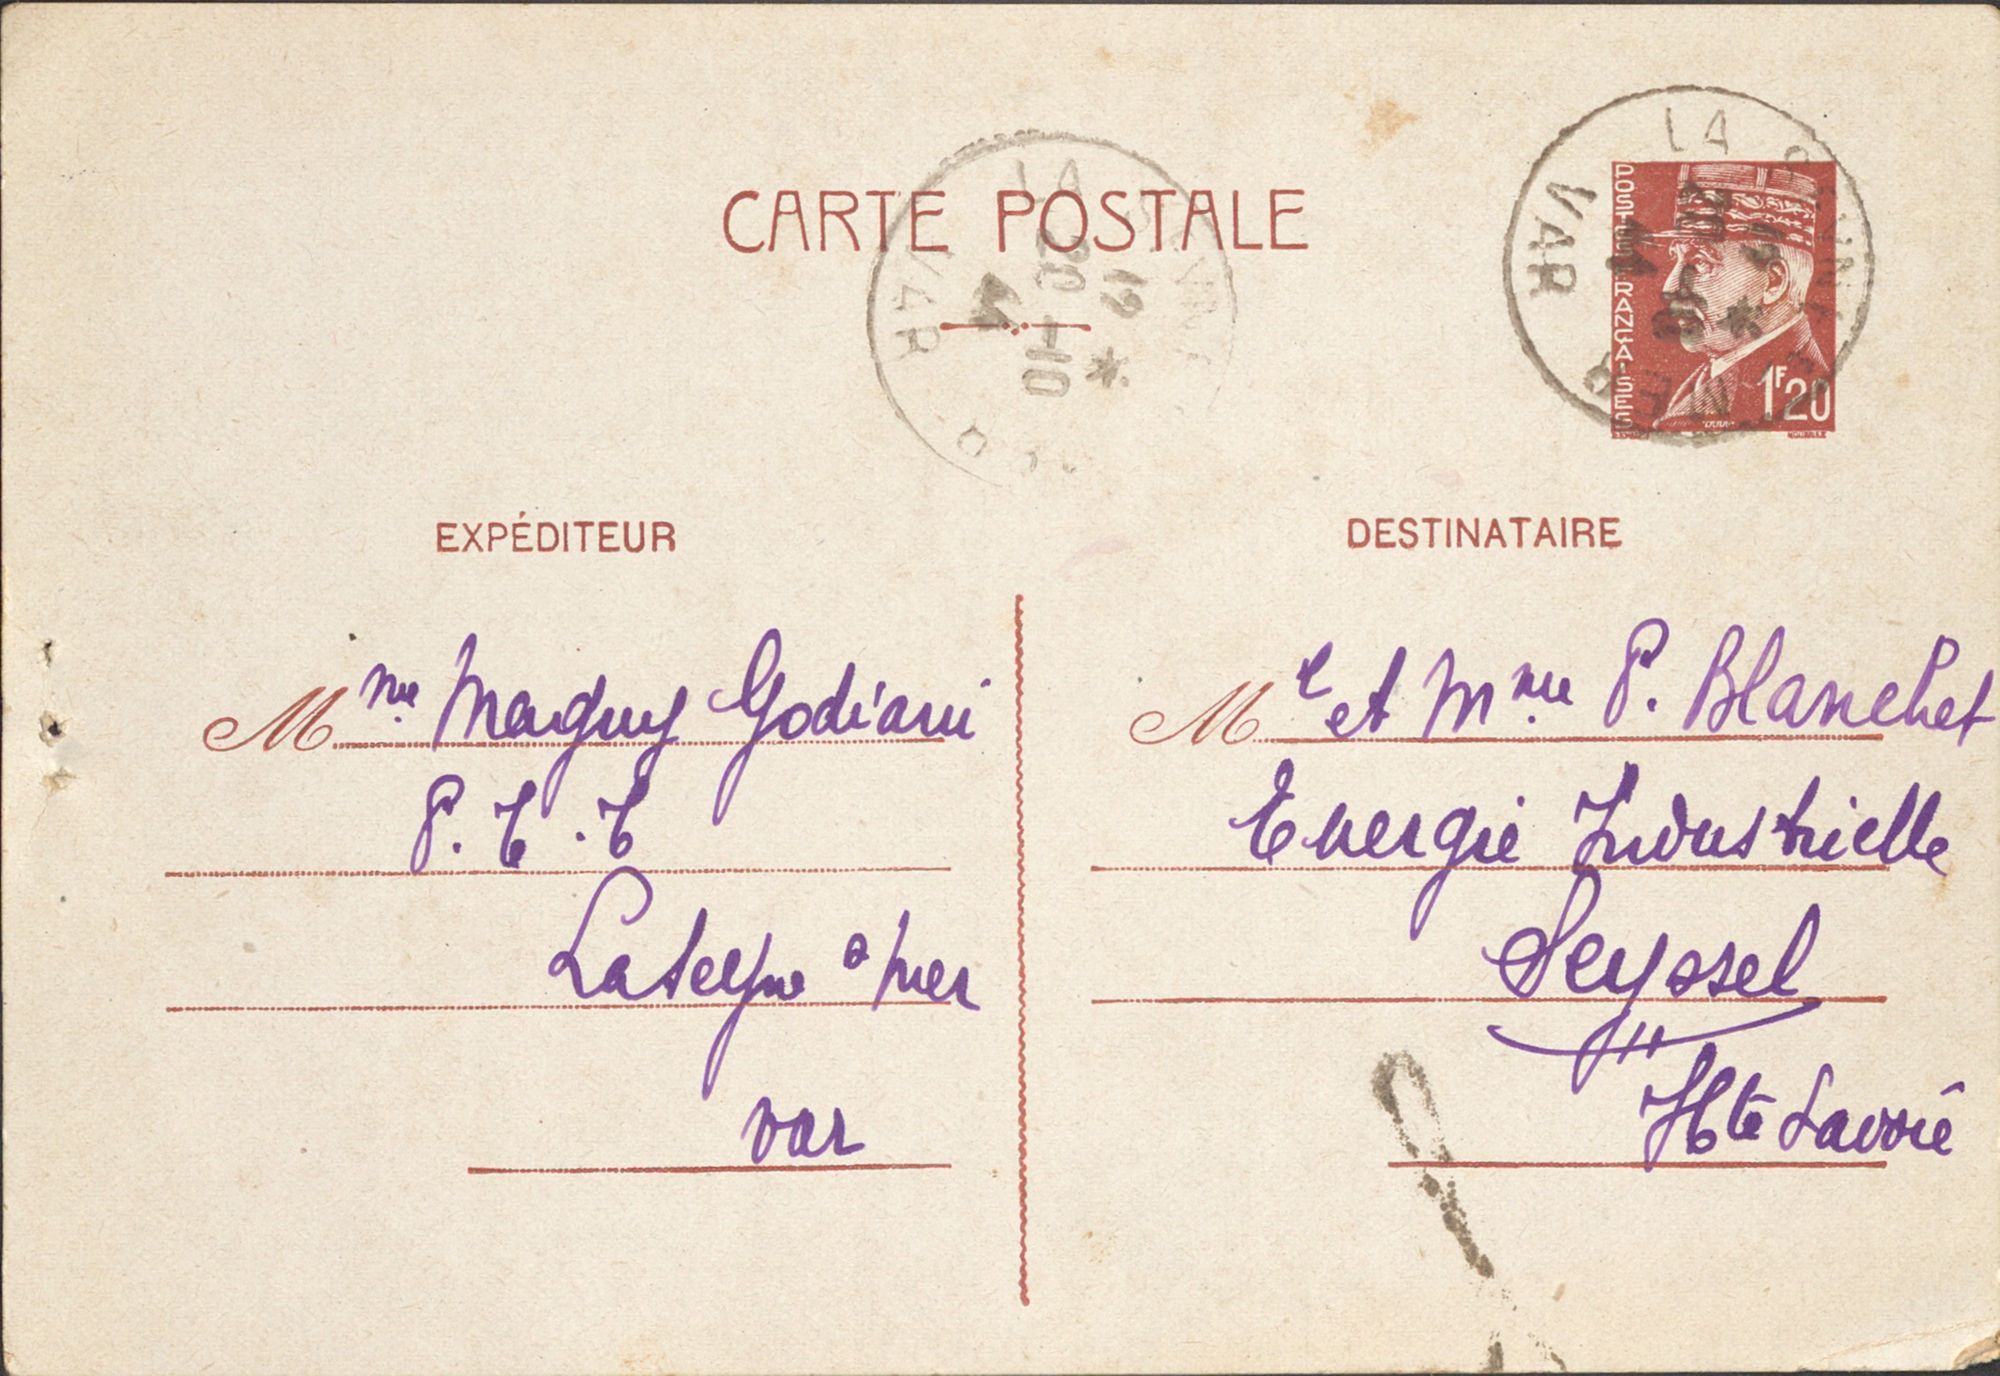 CARTE POSTALE
LA
VAR
19
20 -10
LA
VAR
POSTES FRANÇAISES
1F20
EXPÉDITEUR
DESTINATAIRE
Mme Maguy Godiani
P.T.T
La Seyne s mer
Var
Mr et Mme P. Blanchet
Energie Industrielle
Seyssel
Hte Savoie